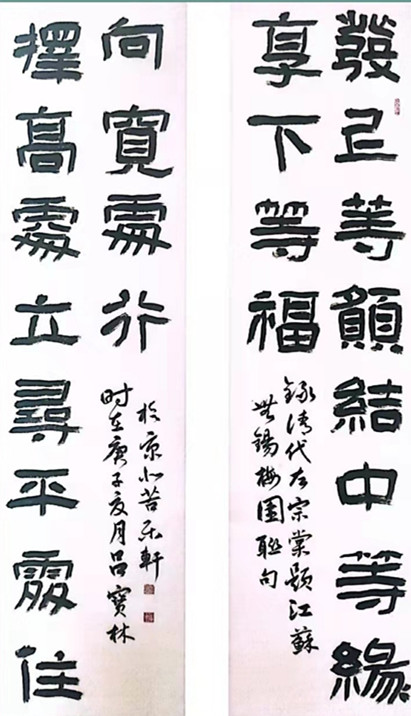 發上等願結中等緣
享下等福
錄清代左宗棠題江蘇
無錫梅園聯句
擇高處立尋平處住
向寬處行
时在庚子夏月吕寶林
於京北苦乐軒